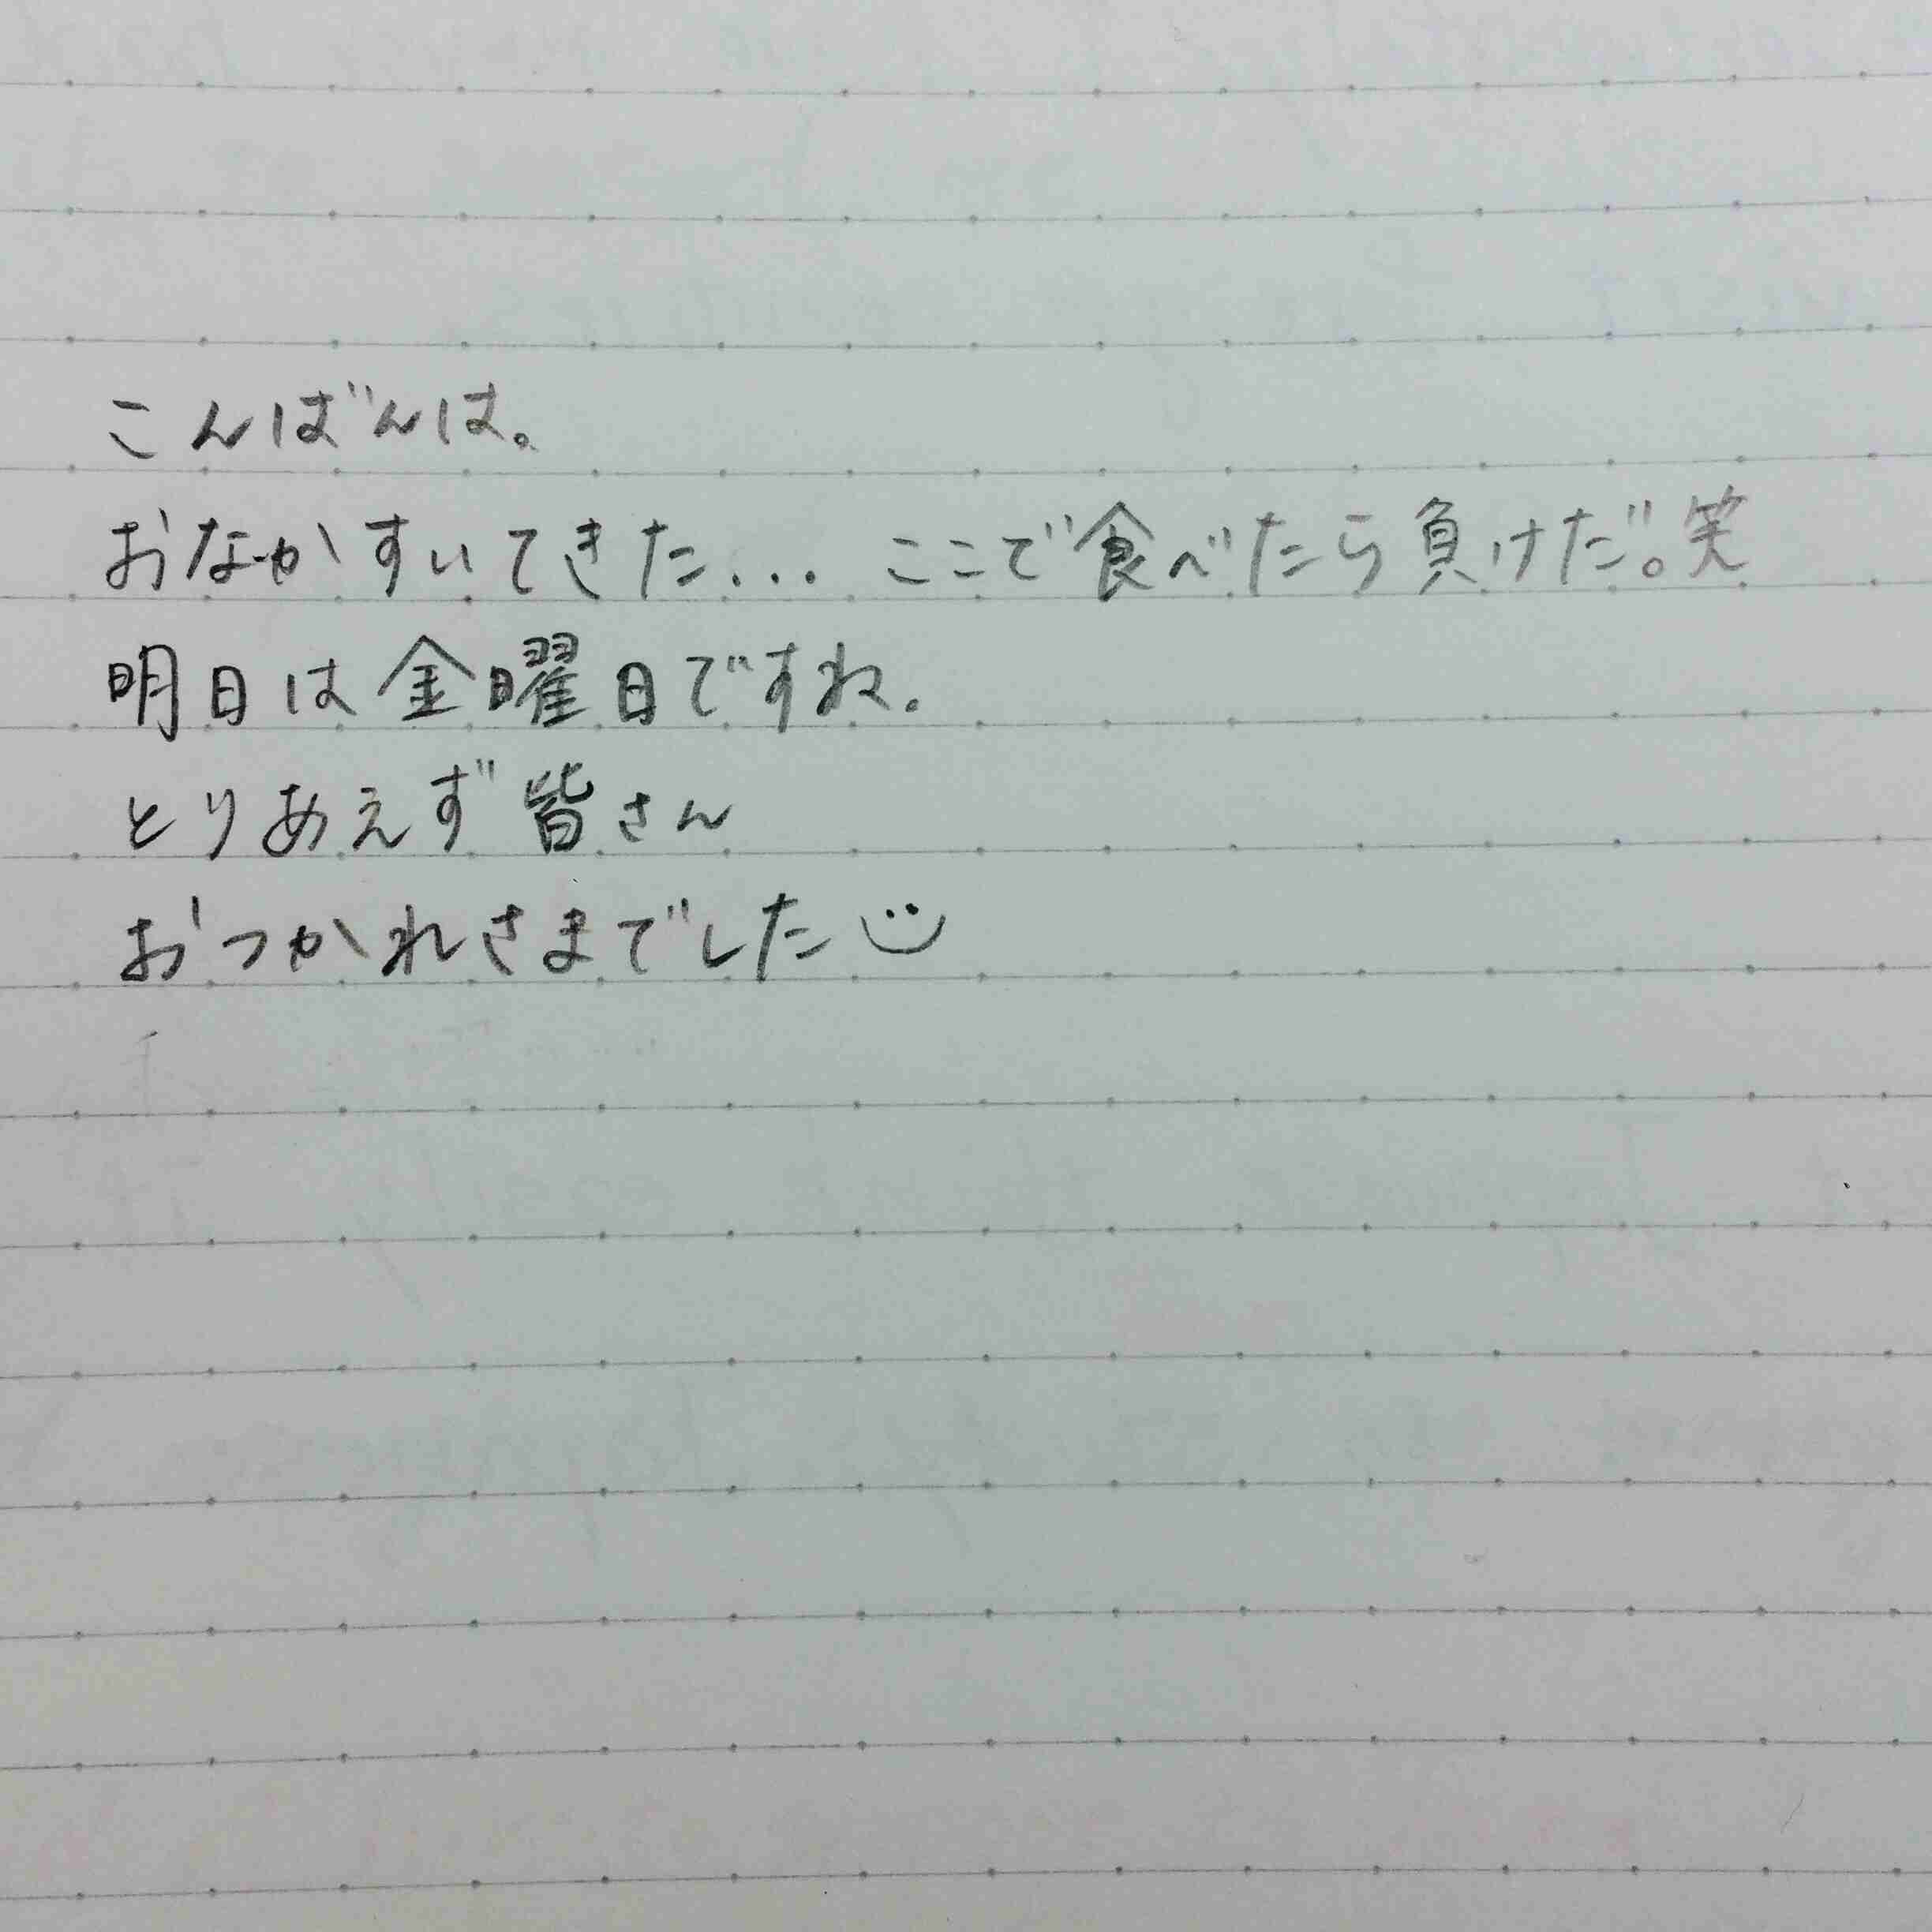 こんばんは。
おなかすいてきた... ここで食べたら負けだ。笑
明日は金曜日ですね.
とりあえず皆さん
おつかれさまでした☺